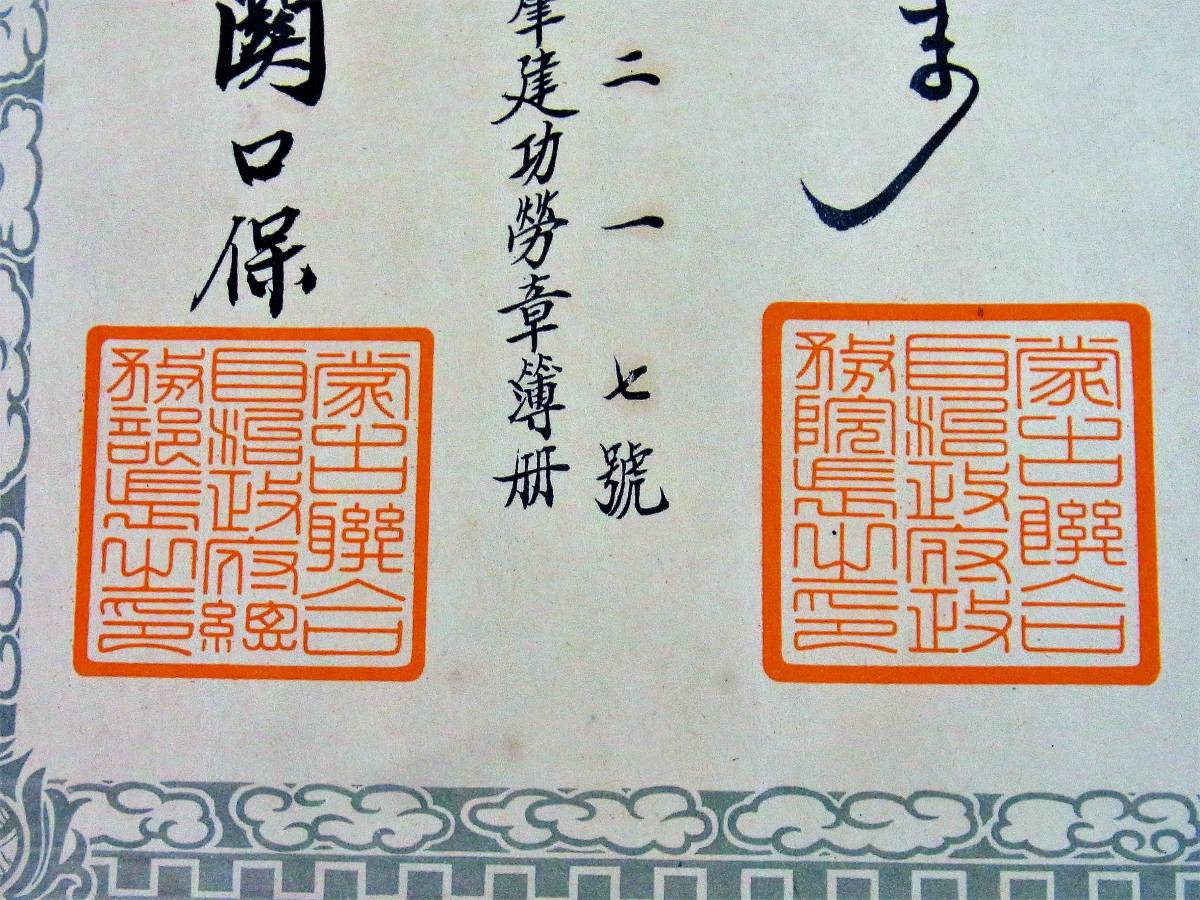 二一七號
肇建功勞章簿册
関口保
蒙古聯合
自治政府政
務院長之印
蒙古聯合
自治政府總
務部長之印